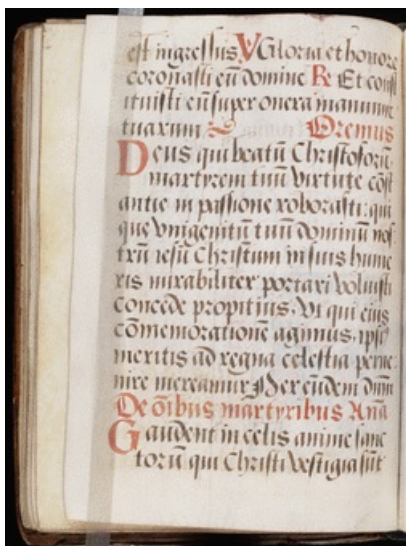 est ingressus. V Gloria et honore
coronasti eū domine R Et const
ituisti eū super onera manuum
tuarum Oremus
Deus qui beatū Christoforū
martyrem tuū virtute cōst
antie in passione roborasti: qui
que vnigenitū tuū dominū nos
trū iesū Christum in suis hume
ris mirabiliter portari voluisti
concede propitius. Vt qui eius
cōmemorationē agimus, ipsi
meritis ad regna celestia perue
nire mereamur Per eūdem dnm
De oībus martyribus Ana
Gaudent in celis anime sanc
torū qui Christi vestigia sūt